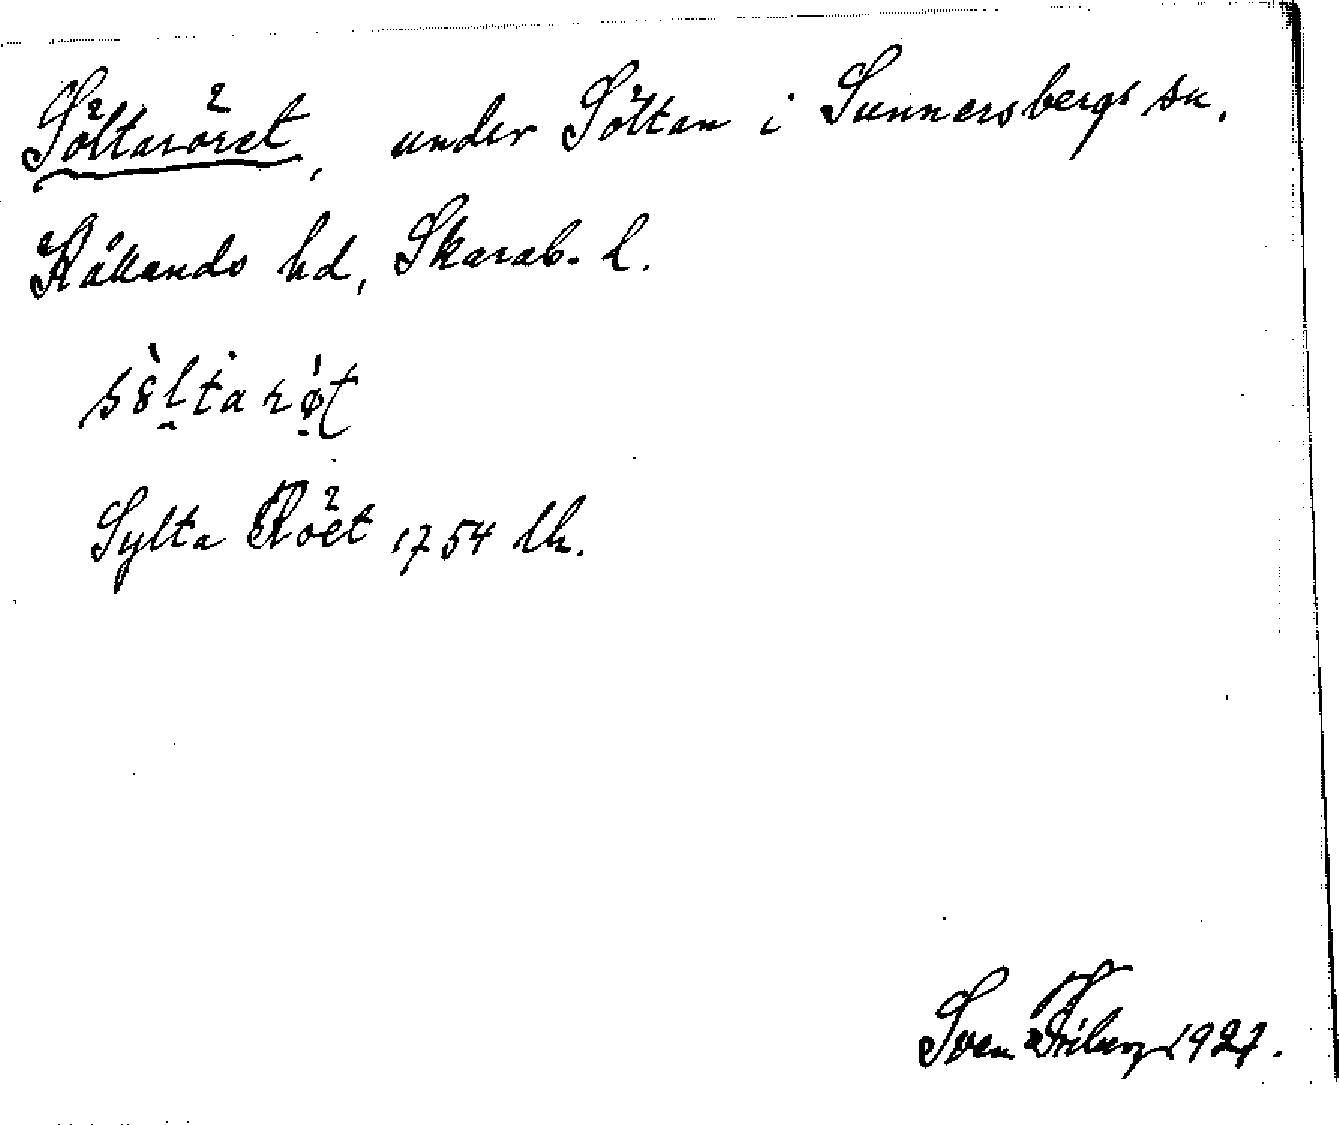 Söltaröret, under Söltan i Sunnersbergs sn.
Kållands hd, Skarab. l.
Sylta Röet 1754 lk.
Sven Friberg 1927.